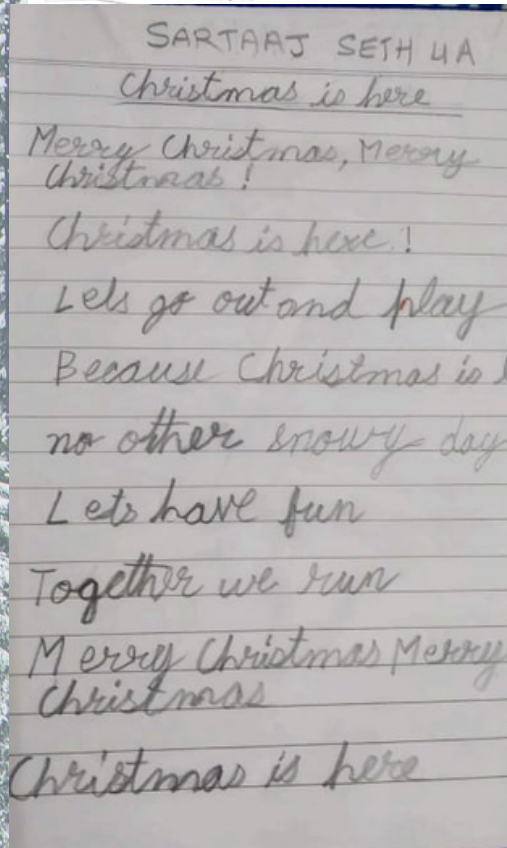 SARTAAJ SETH 4A
Christmas is here
Merry Christmas, Merry
Christmas!
Christmas is here!
Lets go out and play
Because Christmas is
no other snowy day
Lets have fun
Together we run
Merry Christmas Merry
Christmas
Christmas is here